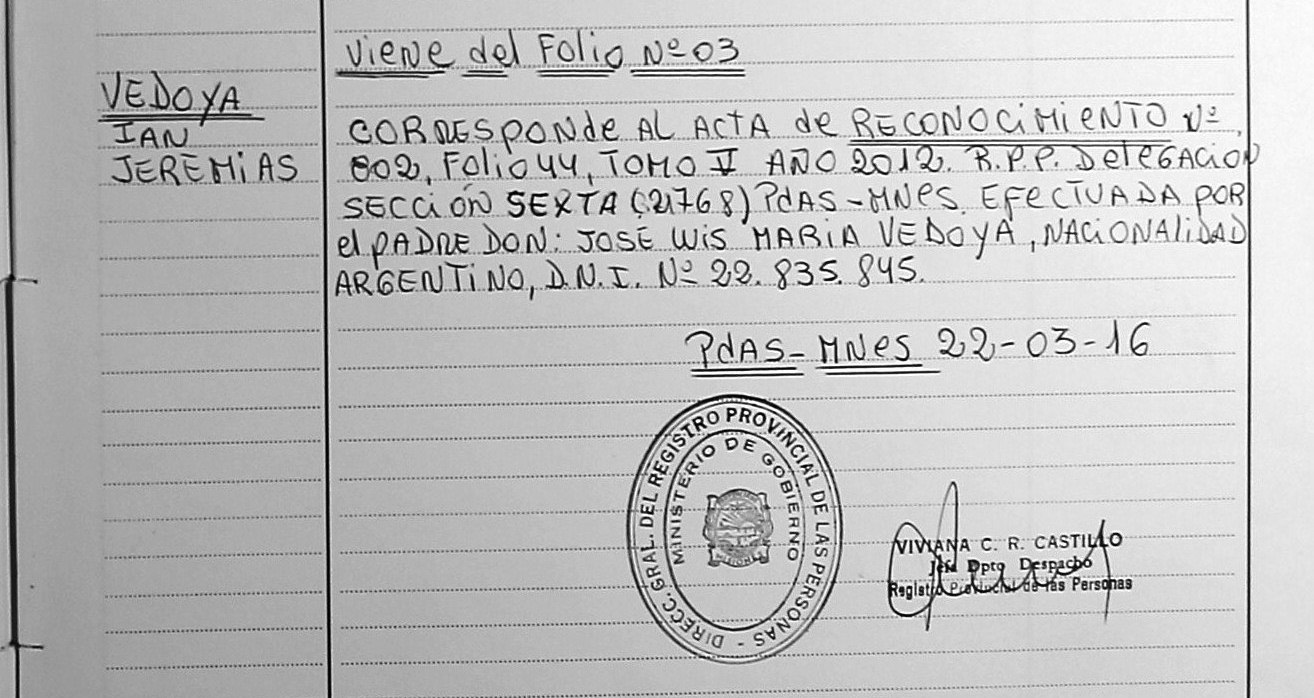 Viene del Folio Nº 03
VEDOYA
IAN
JEREMIAS
CORRESponde AL ACTA de RECONOCIMIENTO Nº
802, Folio 44, TOMO V AÑO 2012. R.P.P. DELEGACION
SECCIÓN SEXTA (2768) PdAS-MNES. EFECTUADA POR
el PADRE DON: JOSÉ LUIS MARIA VEDOYA, NACIONALIDAD
ARGENTINO, D.N.I. Nº 22.835.845.
PdAS-MNES 22-03-16
DIRECC. GRAL. DEL REGISTRO PROVINCIAL DE LAS PERSONAS -
MINISTERIO DE GOBIERNO
VIVIANA C. R. CASTILLO
Jefa Dpto Despacho
Registro Provincial de las Personas